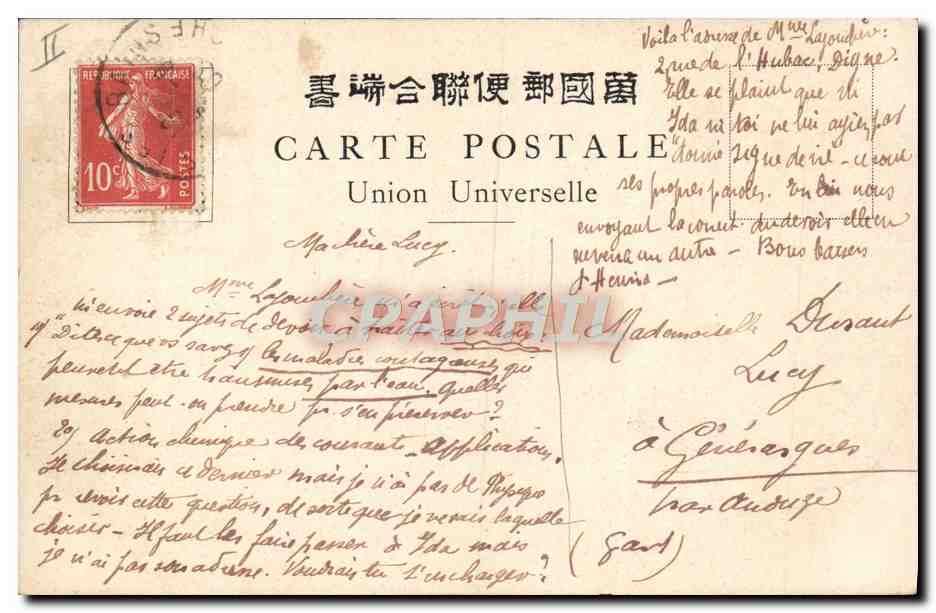 II
RÉPUBLIQUE FRANÇAISE
10c
POSTES
萬國郵便聯合端書
CARTE POSTALE
Union Universelle
Voilà l'adresse de Mme
2 rue de l'Hubac. Digne.
Elle se plaint que ni
Ida ni toi ne lui ayiez pas
"donné signe de vie" - ce sont
ses propres paroles. En nous
envoyant la correct. du devoir elle en
un autre - Bons baisers
Ma chère Lucy.
Mme m'a écrit, elle
m'envoie 2 sujets de devoir à traiter au choix
1o/ Dites ce que vs savez s/ les maladies contagieuses qui
peuvent être transmises par l'eau. Quelles
mesures peut-on prendre pr s'en préserver?
2o/ Action chimique des courants - Application.
Je choisirais ce dernier mais je n'ai pas de Physique
pr revoir cette question, de sorte que je ne sais laquelle
choisir - Il faut les faire passer à Ida mais
je n'ai pas son adresse. Voudrais-tu t'en charger?
CPAPHIL
Mademoiselle Durant
Lucy
à Générargues
par Anduze
(Gard)